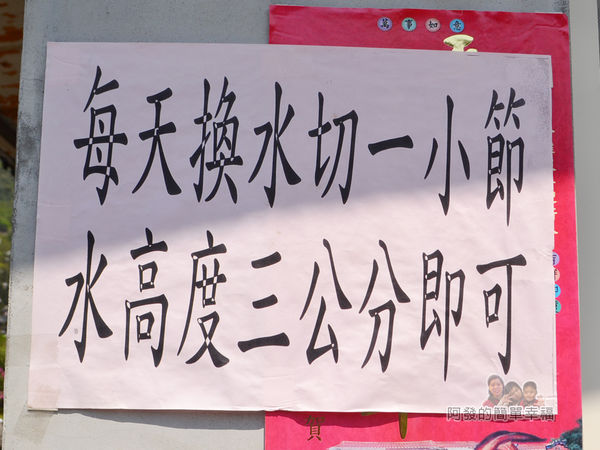 萬事如意
每天換水切一小節
水高度三公分即可
質
阿發的簡單幸福